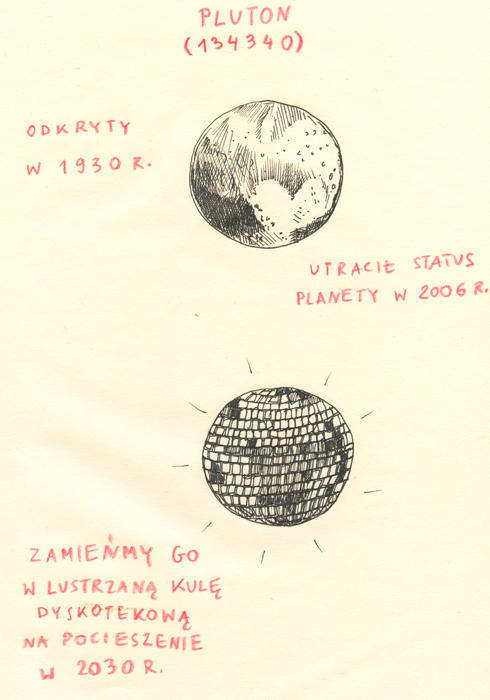 PLUTON
(134340)
ODKRYTY
W 1930 R.
UTRACIŁ STATUS
PLANETY W 2006 R.
ZAMIEŃMY GO
W LUSTRZANĄ KULĘ
DYSKOTEKOWĄ
NA POCIESZENIE
W 2030 R.